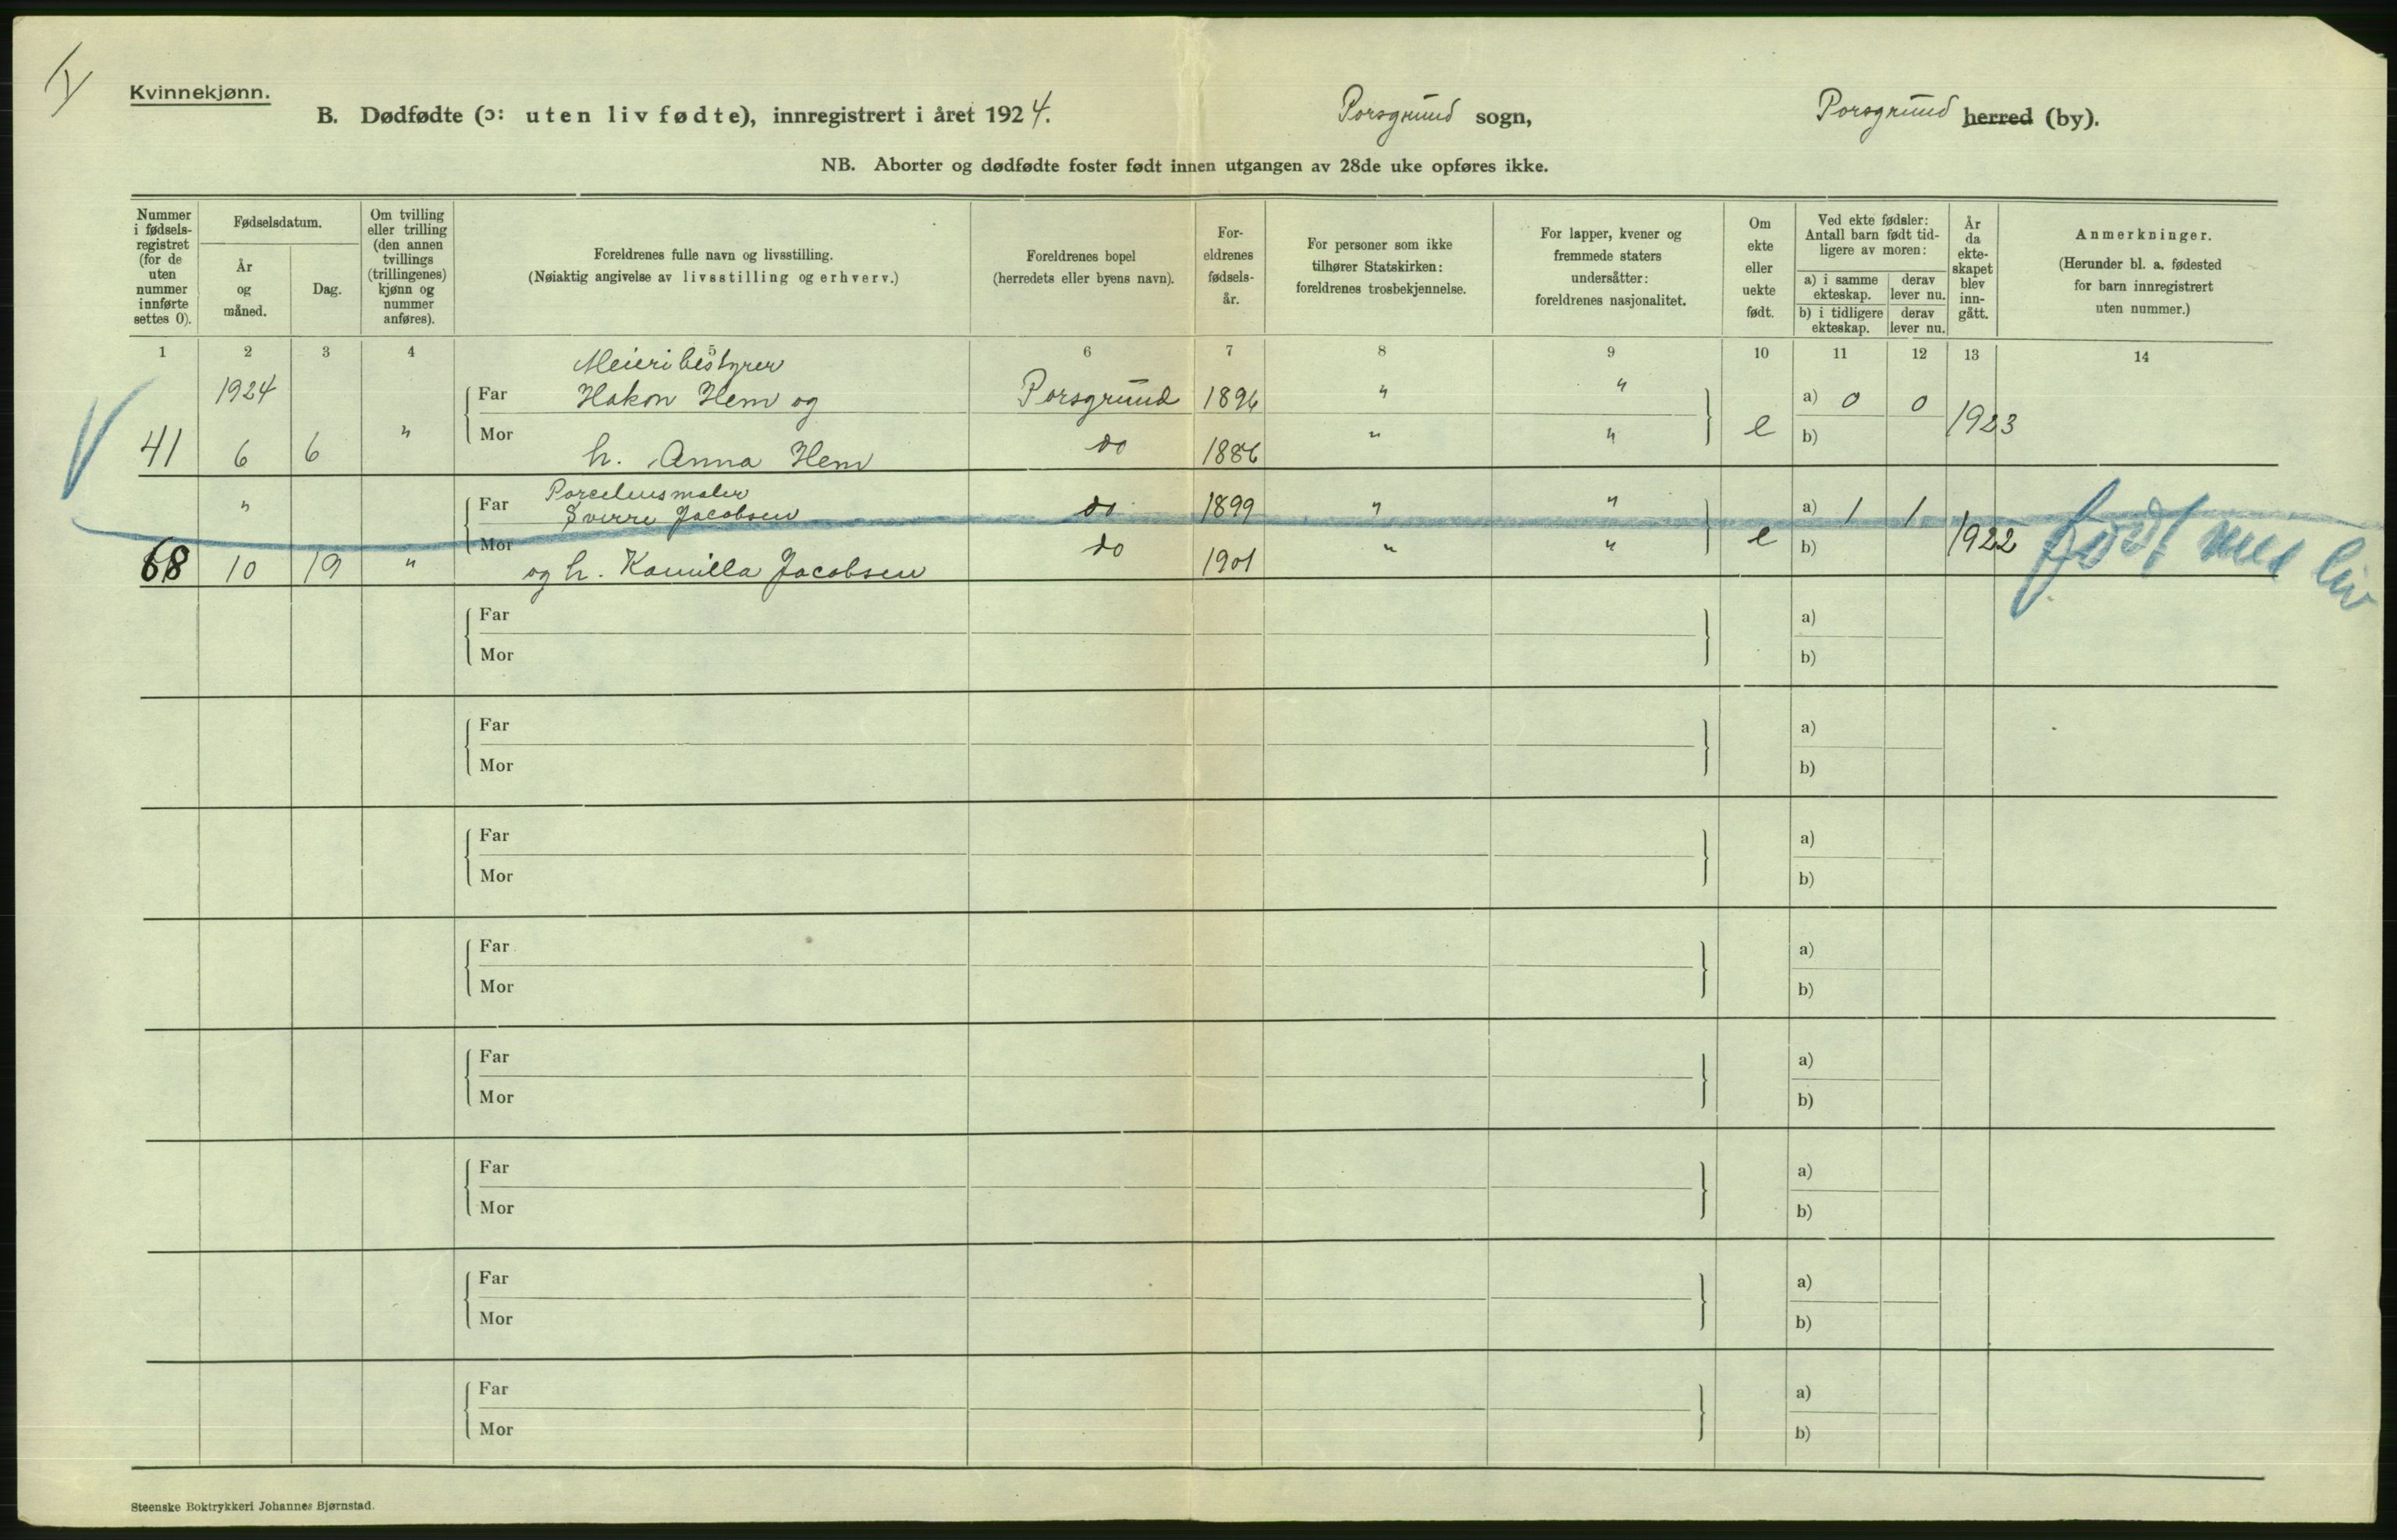 Kvinnekjønn.
B. Dødfødte (ɔ: uten liv fødte), innregistrert i året 1924. Porsgrund sogn, Porsgrund herred (by).
NB. Aborter og dødfødte foster født innen utgangen av 28de uke opføres ikke.
Nummer i fødsels-registret (for de uten nummer innførte settes 0).
Fødselsdatum.
År og måned.
Dag.
Om tvilling eller trilling (den annen tvillings (trillingenes) kjønn og nummer anføres).
Foreldrenes fulle navn og livsstilling.
(Nøiaktig angivelse av livsstilling og erhverv.)
Foreldrenes bopel
(herredets eller byens navn).
For-eldrenes fødsels-år.
For personer som ikke tilhører Statskirken: foreldrenes trosbekjennelse.
For lapper, kvener og fremmede staters undersåtter: foreldrenes nasjonalitet.
Om ekte eller uekte født.
Ved ekte fødsler: Antall barn født tid-ligere av moren:
a) i samme ekteskap. derav lever nu.
b) i tidligere ekteskap. derav lever nu.
År da ekte-skapet blev inn-gått.
Anmerkninger.
(Herunder bl. a. fødested for barn innregistrert uten nummer.)
1 2 3 4 5 6 7 8 9 10 11 12 13 14
Meieribestyrer
1924 Far Hakon Hem og Porsgrund 1896 " " a) 0 0
41 6 6 " Mor h. Anna Hem do 1886 " " e b) 1923
Porcelensmaler
" Far Sverre Jacobsen do 1899 " " a) 1 1
68 10 19 " Mor og h. Kamilla Jacobsen do 1901 " " e b) 1922 født med liv
Far a)
Mor b)
Far a)
Mor b)
Far a)
Mor b)
Far a)
Mor b)
Far a)
Mor b)
Far a)
Mor b)
Far a)
Mor b)
Far a)
Mor b)
Steenske Boktrykkeri Johannes Bjørnstad.